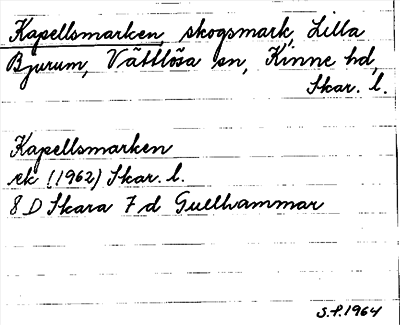 Kapellsmarken, skogsmark, Lilla
Bjurum, Vättlösa sn, Kinne hd,
Skar. l.
Kapellsmarken
ek (1962) Skar. l.
8 D Skara 7 d Gullhammar
S.F. 1964